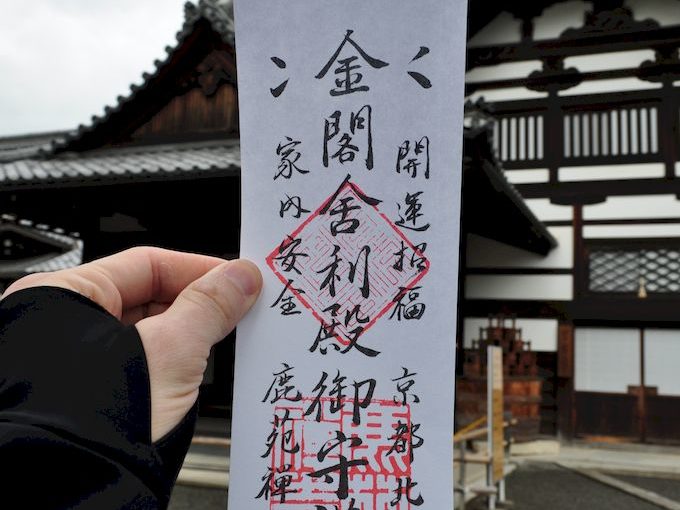 開運招福 京都北
金閣舎利殿御守
家内安全 鹿苑禪